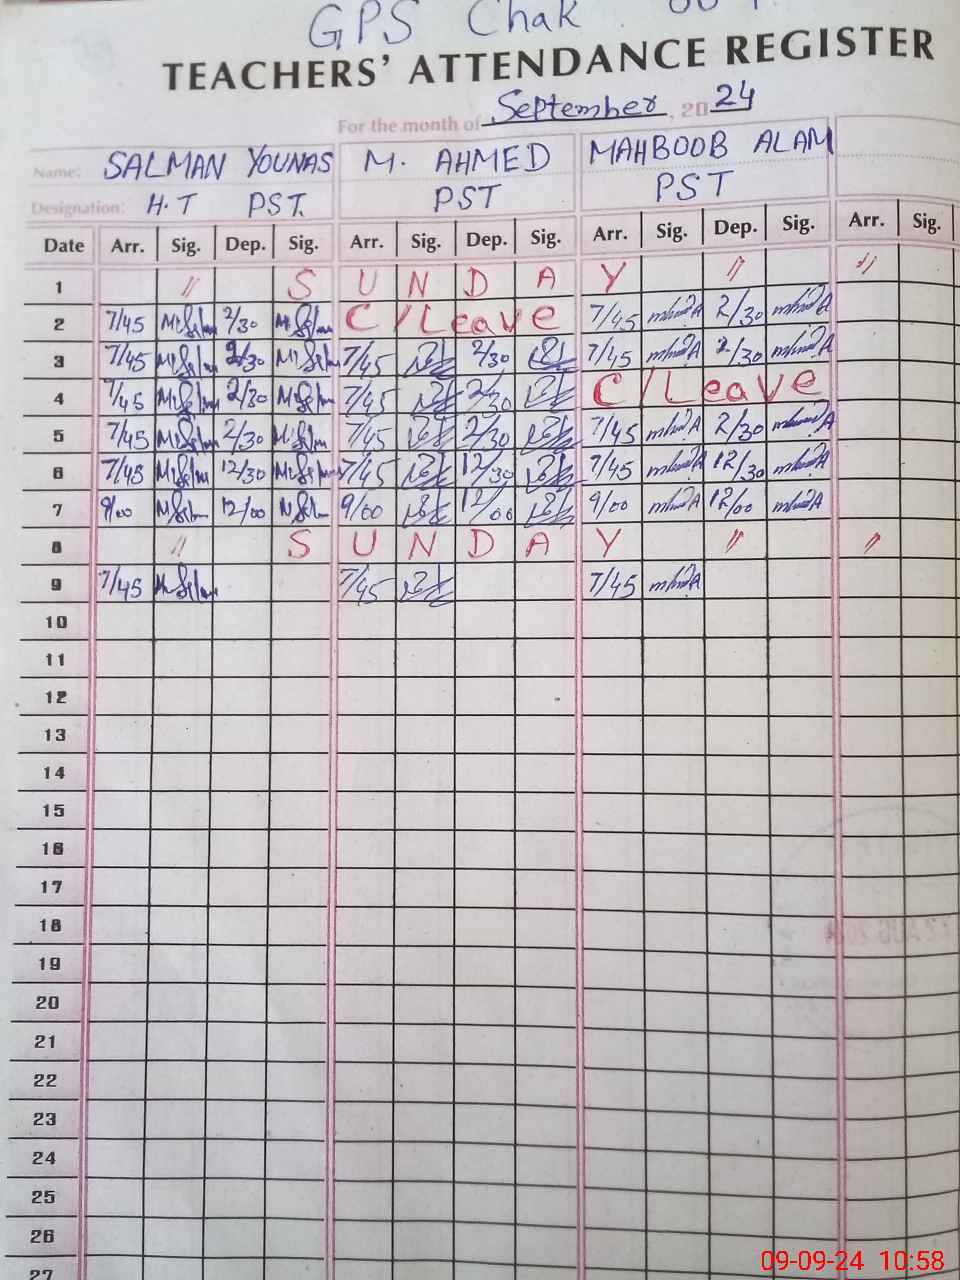 GPS Chak
TEACHERS' ATTENDANCE REGISTER
For the month of September, 2024
Name: SALMAN YOUNAS M. AHMED MAHBOOB ALAM
Designation: H.T PST. PST PST
Date Arr. Sig. Dep. Sig. Arr. Sig. Dep. Sig. Arr. Sig. Dep. Sig. Arr. Sig.
1 " S U N D A Y " "
2 7/45 2/30 C/Leave 7/45 2/30
3 7/45 2/30 7/45 2/30 7/45 2/30
4 7/45 2/30 7/45 2/30 C/Leave
5 7/45 2/30 7/45 2/30 7/45 2/30
6 7/45 12/30 7/45 12/30 7/45 12/30
7 9/00 12/00 9/00 12/00 9/00 12/00
8 " S U N D A Y " "
9 7/45 7/45 7/45
10
11
12
13
14
15
16
17
18
19
20
21
22
23
24
25
26
27
09-09-24 10:58